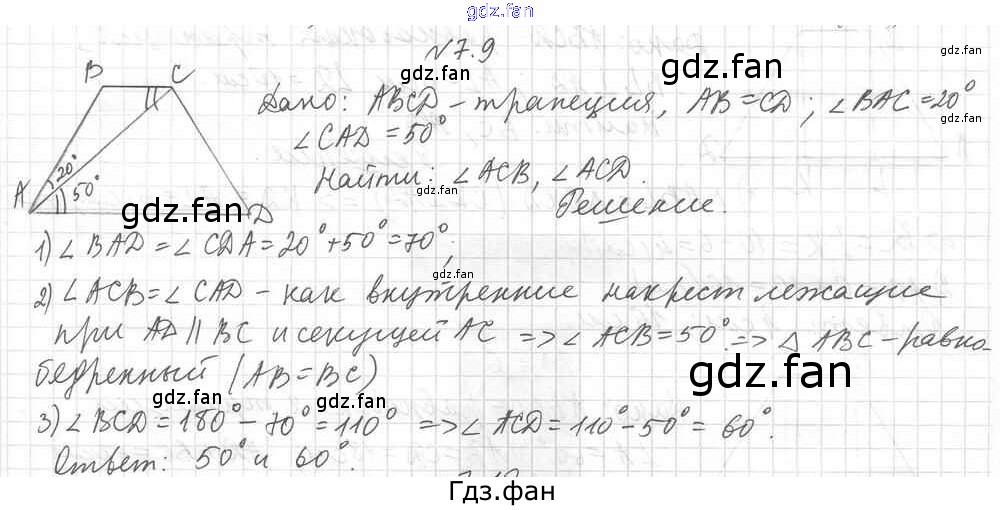 gdz.fan
N 7.9
gdz.fan
gdz.fan
B C
Дано: ABCD - трапеция, AB = CD; ∠BAC = 20°
gdz.fan
gdz.fan
∠CAD = 50°
Найти: ∠ACB, ∠ACD.
gdz.fan
gdz.fan
20°
50°
A
D
gdz.fan
Решение.
1) ∠BAD = ∠CDA = 20° + 50° = 70°;
gdz.fan
2) ∠ACB = ∠CAD - как внутренние накрест лежащие
gdz.fan
при AD || BC и секущей AC => ∠ACB = 50°. => △ABC - равно-
бедренный (AB = BC)
gdz.fan
gdz.fan
3) ∠BCD = 180° - 70° = 110° => ∠ACD = 110° - 50° = 60°.
gdz.fan
gdz.fan
Ответ: 50° и 60°.
gdz.fan
gdz.fan
Гдз.фан